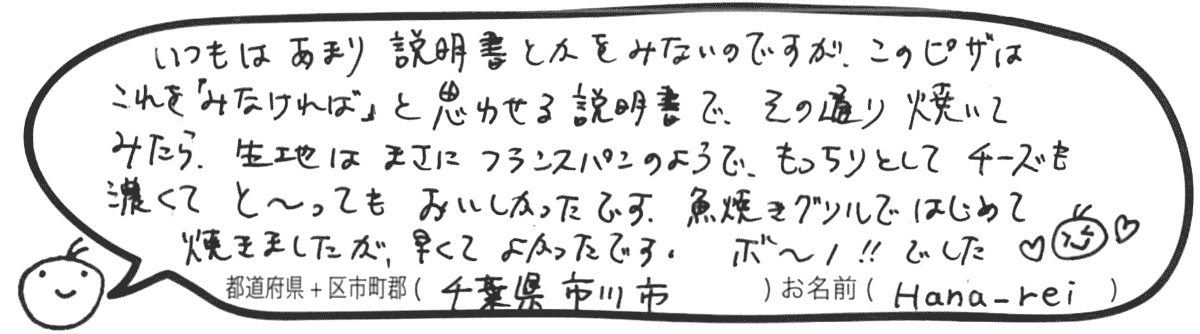 いつもは あまり 説明書とかをみないのですが、このピザは
これを「みなければ」と思わせる説明書で、その通り焼いて
みたら、生地はまさにフランスパンのようで、もっちりとして チーズも
濃くて と〜っても おいしかったです。魚焼きグリルではじめて
焼きましたが、早くてよかったです。 ボ〜ノ!! でした
都道府県+区市町郡( 千葉県 市川市 )お名前( Hana-rei )